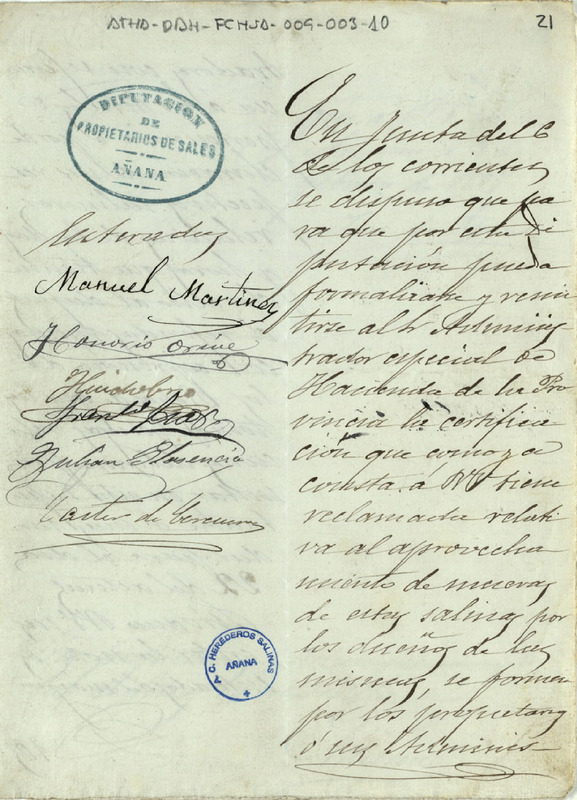 ATHA-DAH-FCHSA-009-003-10
21
DIPUTACION
DE
PROPIETARIOS DE SALES
AÑANA
Enterados
Manuel Martinez
Honorio Orive
Huidobro
Julian Plasencia
Castor de
En Junta del 6
de los corrientes
se dispuso que pa
ra que por esta Di
putación pueda
formalizarse y remi
tirse al Sr Adminis
trador especial de
Hacienda de la Pro
vincia la certifica
ción que como ya
consta á V tiene
reclamada relati
va al aprovecha
miento de mueras
de estas salinas por
los dueños de las
mismas, se formen
por los propietarios
ó sus Adminis
A. C. HEREDEROS SALINAS
AÑANA